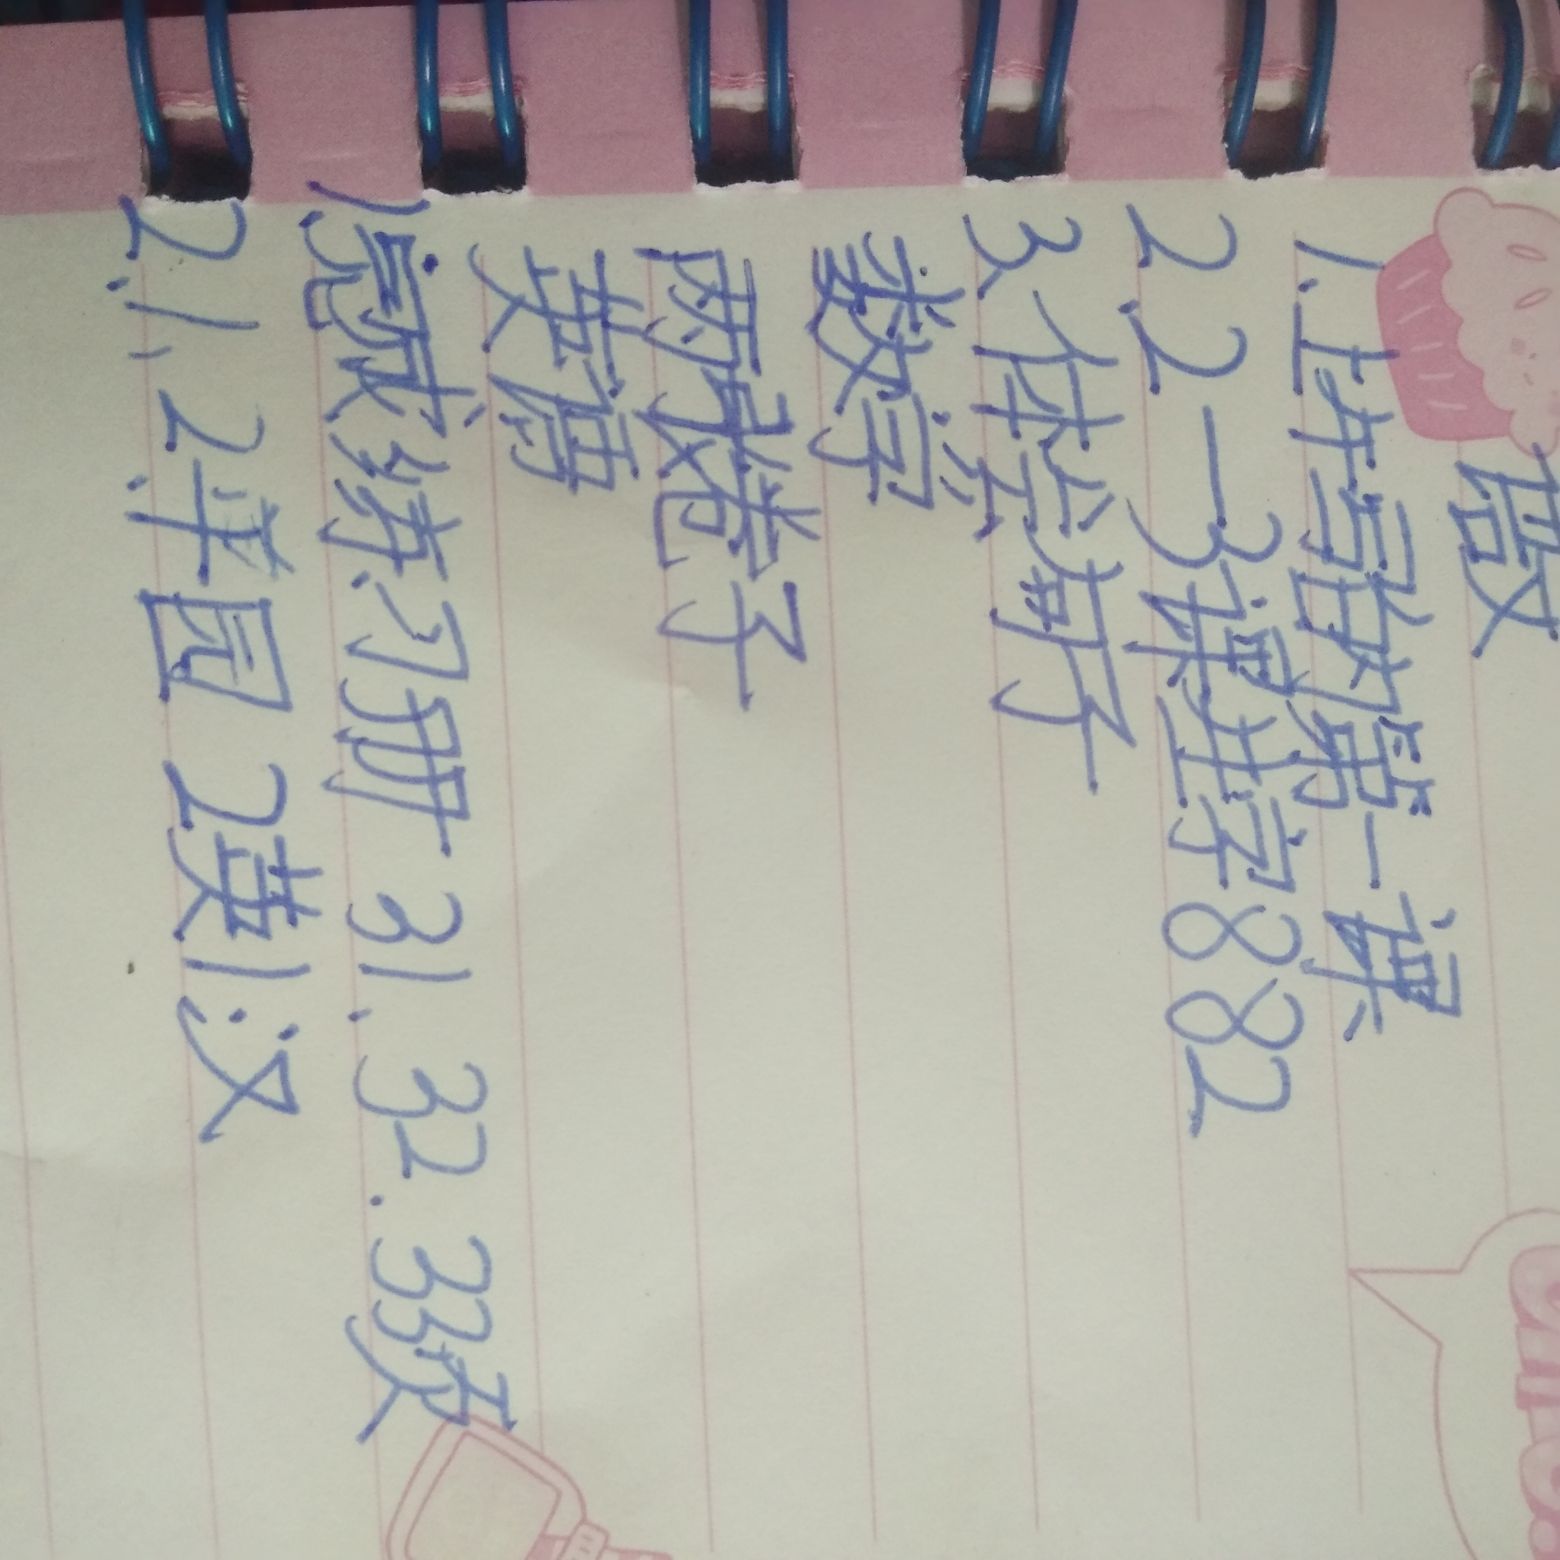 语文
1.上午的第一课
2.2一3课生字882
3.体会
数学
两张卷子
英语
1.完成练习册31.32.33页
2.1,2单园2英1汉